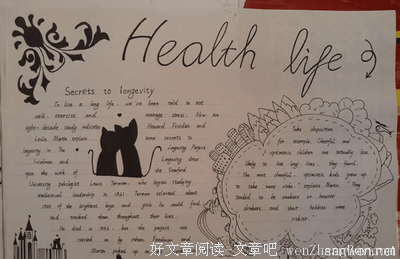 Health life
Secrets to longevity
To live a long life, we've been told to eat
well, exercise and manage stress. Now an
eight-decade study indicates Howard Friedman and
Leslie Martin explain some secrets to
longevity in The Longevity Project
Friedman and Longevity drew
upon the work of the Stanford
University psychologist Lewis Terman, who began studying
intellectual leadership in 1921. Terman selected about
1500 of the brightest boys and girls he could find
and tracked them throughout their lives.
He died in 1956, but the project was
carried on by others.
Martin picked up
Take disposition,
for example. Cheerful and
optimistic children are actually less
likely to live long lives, they found.
The more cheerful, optimistic kids grew up
to take more risks," explains Martin. They
tended to be smokers or heavier
drinkers, and their hobbies were
riskier.
好文章阅读-文章吧
wenzhangba.com
sanwen.net